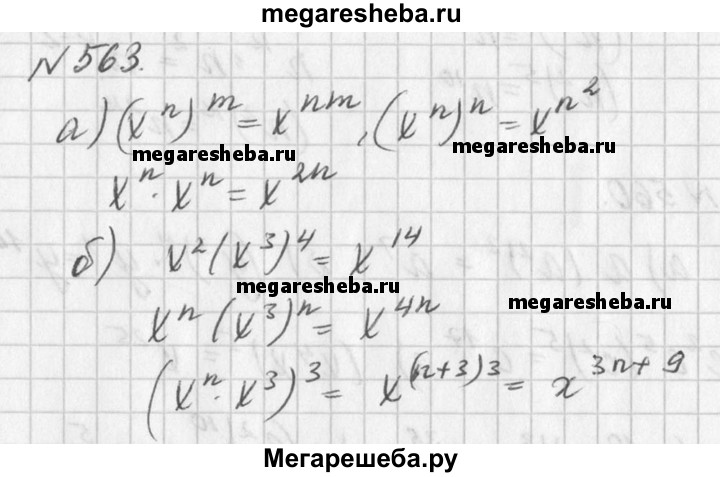 megaresheba.ru
№563.
а) (xⁿ)ᵐ = xⁿᵐ, (xⁿ)ⁿ = x^{n²}
megaresheba.ru megaresheba.ru
xⁿ · xⁿ = x²ⁿ
б) x²(x³)⁴ = x¹⁴
megaresheba.ru megaresheba.ru
xⁿ(x³)ⁿ = x⁴ⁿ
(xⁿ · x³)³ = x^{(n+3)3} = x^{3n+9}
Мегарешеба.ру